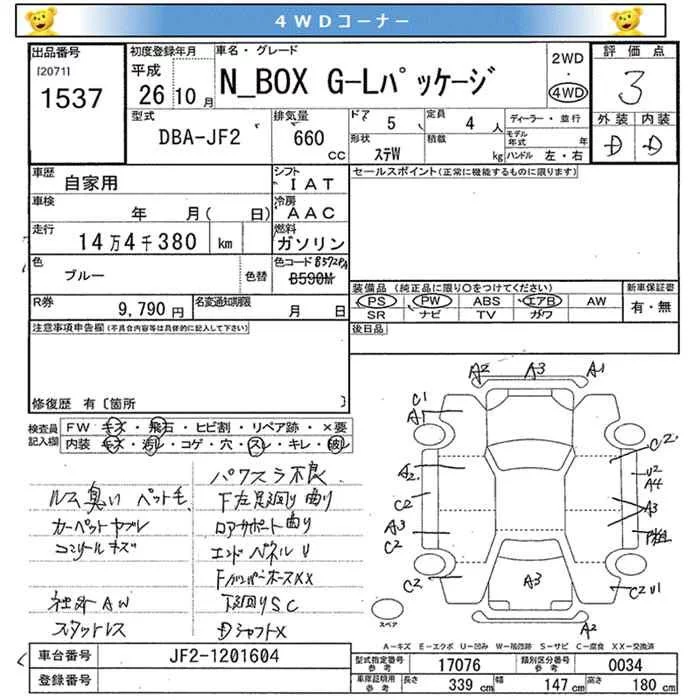 ４ＷＤコーナー
出品番号 初度登録年月 車名・グレード 2WD 評価点
[2071] 平成 ・
1537 26 10月 N_BOX G-Lパッケージ 4WD 3
型式 排気量 ドア 5 定員 4人 ディーラー・並行 外装 内装
DBA-JF2 660 CC 形状 ステW 積載 kg モデル年式 年 D D
ハンドル 左・右
車歴 自家用 シフト IAT セールスポイント(正常に機能するものに限ります)
車検 年 月( 日) 冷房 AAC
走行 14万4千380 km 燃料 ガソリン
色 ブルー 色替 色コード B572P
B590M
装備品 (純正品に限り○をつけてください) 新車保証書
R券 9,790円 名変通知期限 月 日 PS PW ABS エアB AW 有・無
SR ナビ TV ガワ
注意事項申告欄(不具合内容等は具体的に記入して下さい) 後日品
修復歴 有 〔箇所 〕
検査員 FW キズ・飛石・ヒビ割・リペア跡・×要
記入欄 内装 キズ・汚レ・コゲ・穴・スレ・キレ・破レ
パワスラ不良
ルーム臭い ペット毛 下左足廻り曲り
カーペットヤブレ ロアサポート曲り
コンソールキズ エンドパネルU
Fバンパーホースxx
社外AW 下廻りSC
スタットレス Dシャフト×
A2 A3 A1
C1
A1
A2 C2
C2 U2
A4
A3 A3
C2
C2 A3 C2 U1
スペア A2
A－キズ E－エクボ U－凹み W－補修跡 S－サビ C－腐食 XX－交換済
車台番号 JF2-1201604 型式指定番号 参考 17076 類別区分番号 参考 0034
登録番号 車庫証明用 参考 長さ 339 cm 幅 147 cm 高さ 180 cm